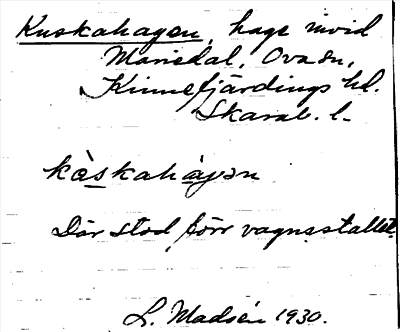 Kuskahagen, hage invid
Mariedal, Ova sn,
Kinnefjärdings hd.
Skarab. l.
kàskahàgen
Där stod förr vagnsstallet.
L. Madsén 1930.